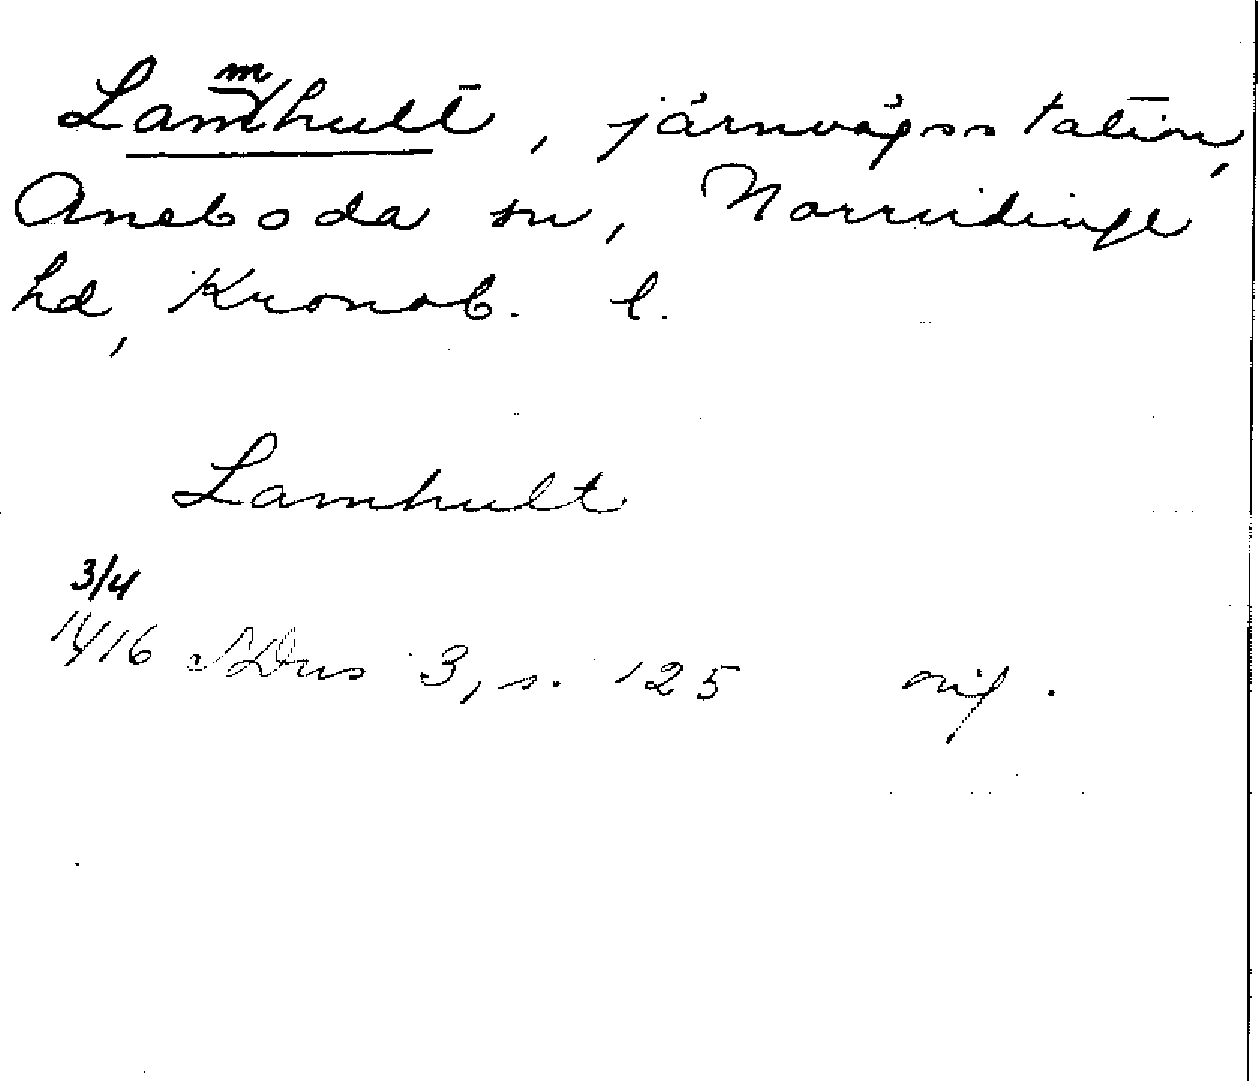 Lammhult, järnvägsstation,
Aneboda sn, Norrvidinge
hd, Kronob. l.
Lamhult
3/4
1416 SDns 3, s. 125 orig.